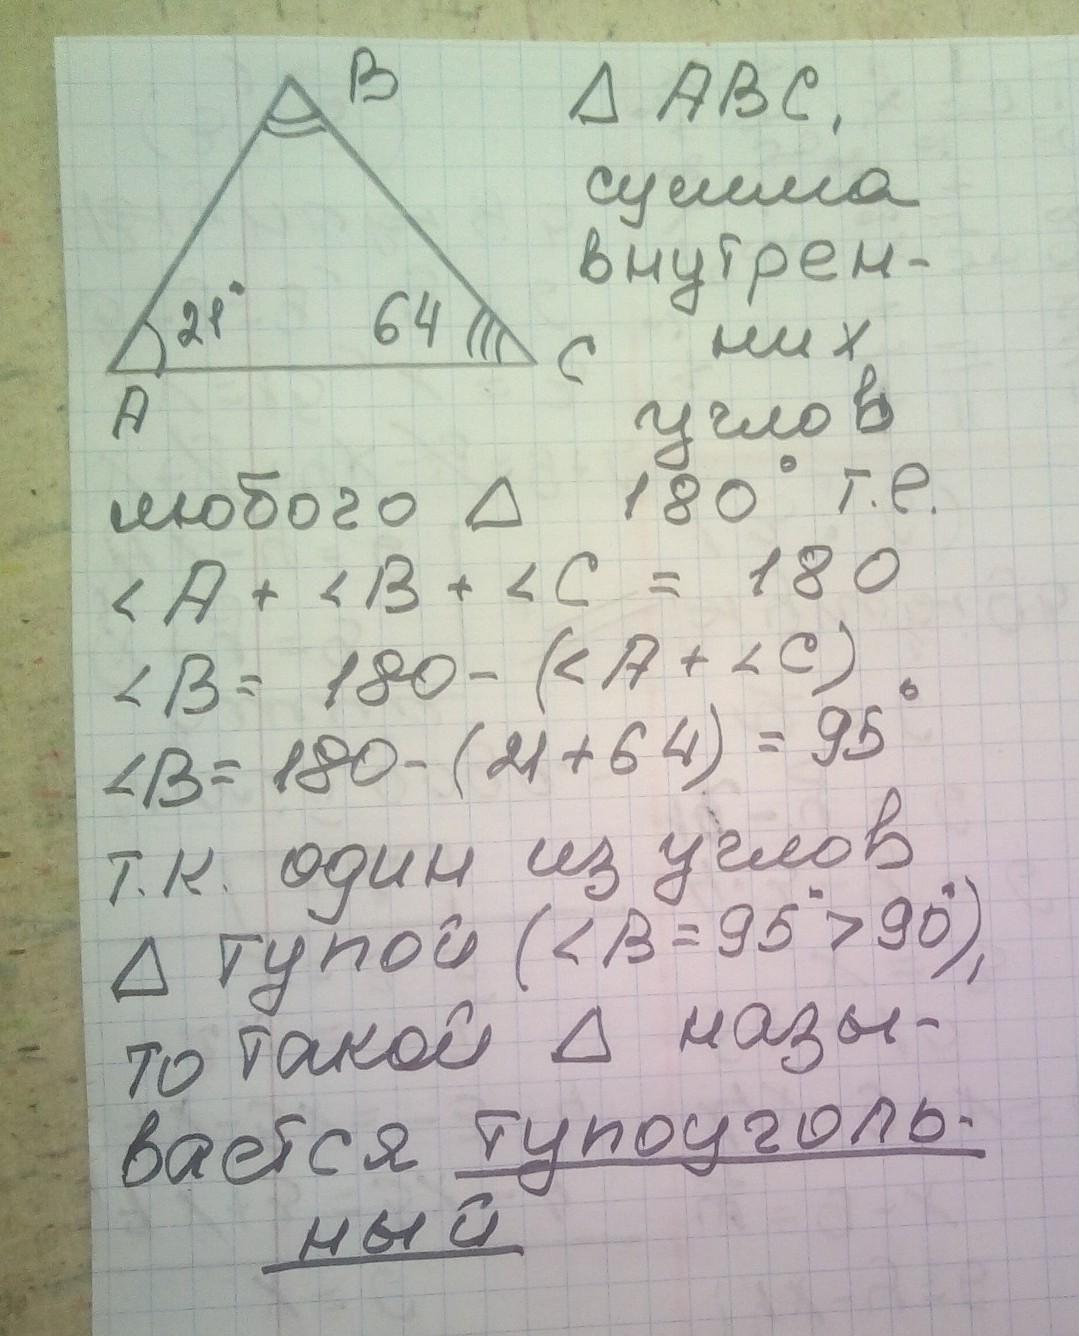 B
Δ ABC,
сумма
внутрен-
21° 64
них
A C
углов
любого Δ 180° т.е.
<A + <B + <C = 180
<B = 180 - (<A + <C)
<B = 180 - (21 + 64) = 95°
т.к. один из углов
Δ тупой (<B = 95° > 90°),
то такой Δ назы-
вается тупоуголь-
ный